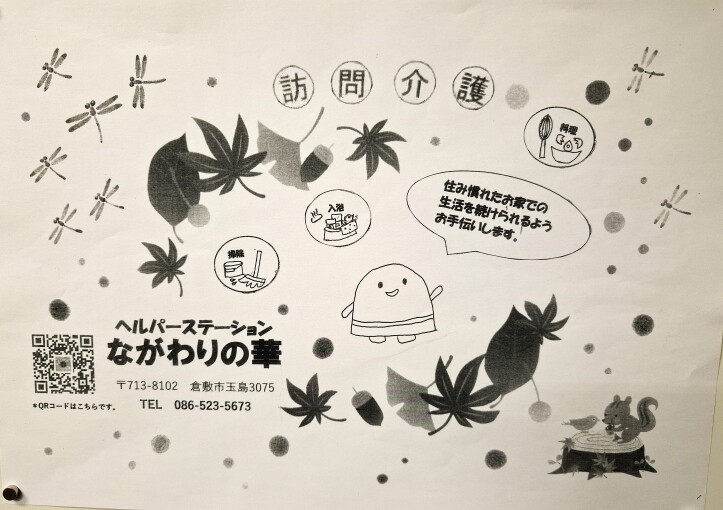 訪問介護
料理
入浴
掃除
住み慣れたお家での
生活を続けられるよう
お手伝いします。
ヘルパーステーション
ながわりの華
〒713-8102 倉敷市玉島3075
TEL 086-523-5673
*QRコードはこちらです。